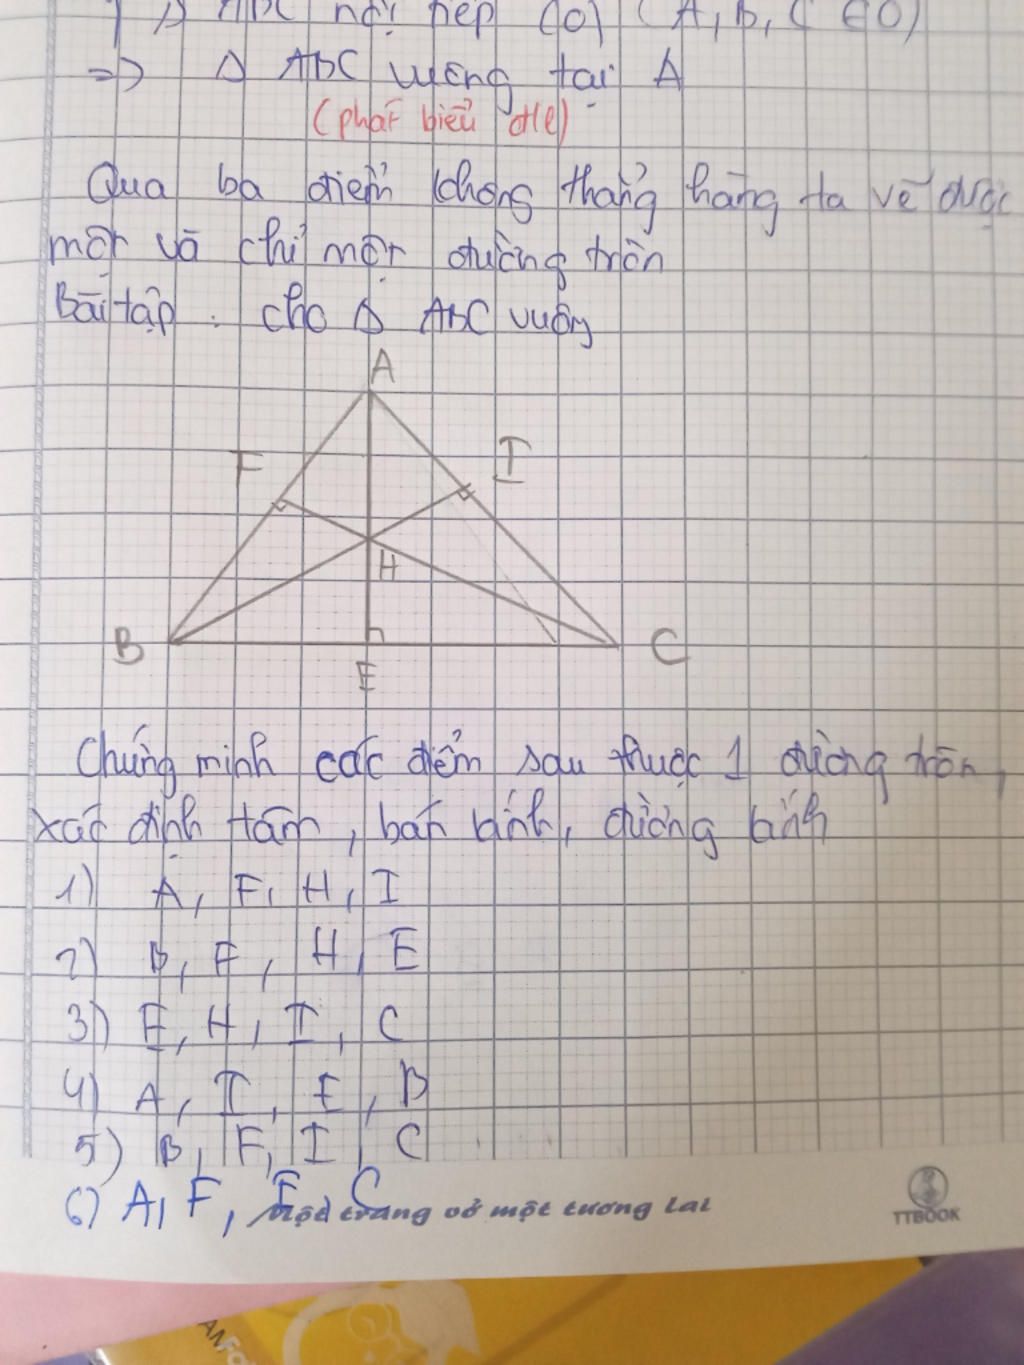 Δ ABC nội tiếp (O) (A, B, C ∈ O)
=> Δ ABC vuông tại A
(phát biểu đl)
Qua ba điểm không thẳng hàng ta vẽ được
một và chỉ một đường tròn
Bài tập. cho Δ ABC vuông
A
F I
H
B C
E
Chứng minh các điểm sau thuộc 1 đường tròn,
xác định tâm, bán kính, đường kính
1) A, F, H, I
2) B, F, H, E
3) E, H, I, C
4) A, I, E, B
5) B, F, I, C
6) A, F, E, C
Một trang vở một tương lai
TTBOOK